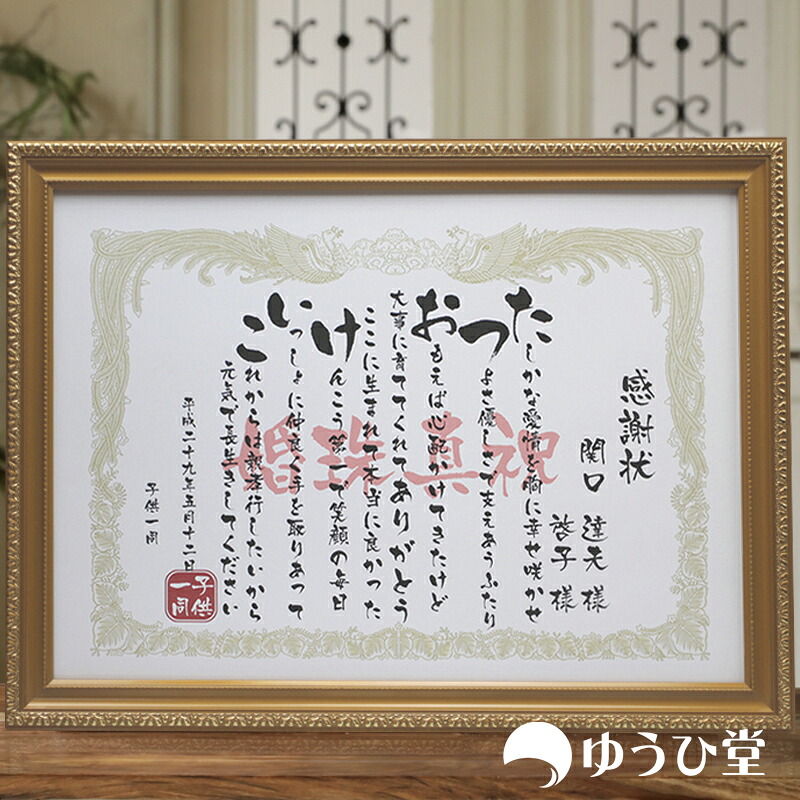 感謝状
関口 達夫 様
啓子 様
たしかな愛情を胸に幸せ咲かせ
つよさ優しさで支えあうふたり
おもえば心配かけてきたけど
大事に育ててくれてありがとう
ここに生まれて本当に良かった
けんこう第一で笑顔の毎日
いっしょに仲良く手を取りあって
これからは親孝行したいから
元気で長生きしてください
平成二十九年五月十二日
子供一同
子供一同
祝真珠婚
ゆうひ堂